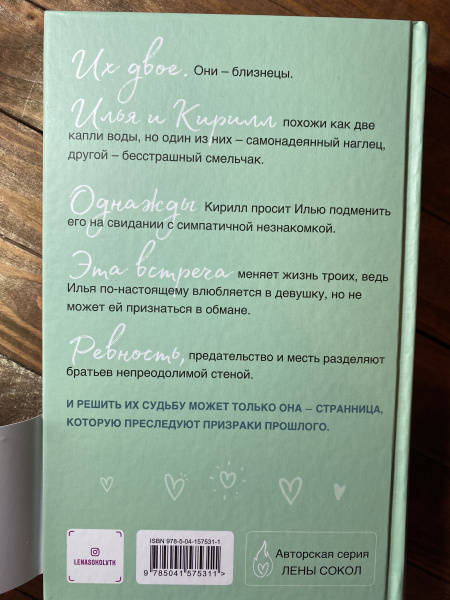 Их двое. Они – близнецы.
Илья и Кирилл похожи как две
капли воды, но один из них – самонадеянный наглец,
другой – бесстрашный смельчак.
Однажды Кирилл просит Илью подменить
его на свидании с симпатичной незнакомкой.
Эта встреча меняет жизнь троих, ведь
Илья по-настоящему влюбляется в девушку, но не
может ей признаться в обмане.
Ревность, предательство и месть разделяют
братьев непреодолимой стеной.
И РЕШИТЬ ИХ СУДЬБУ МОЖЕТ ТОЛЬКО ОНА – СТРАННИЦА,
КОТОРУЮ ПРЕСЛЕДУЮТ ПРИЗРАКИ ПРОШЛОГО.
LENASOKOLVTK
ISBN 978-5-04-157531-1
9 785041 575311>
Авторская серия
ЛЕНЫ СОКОЛ